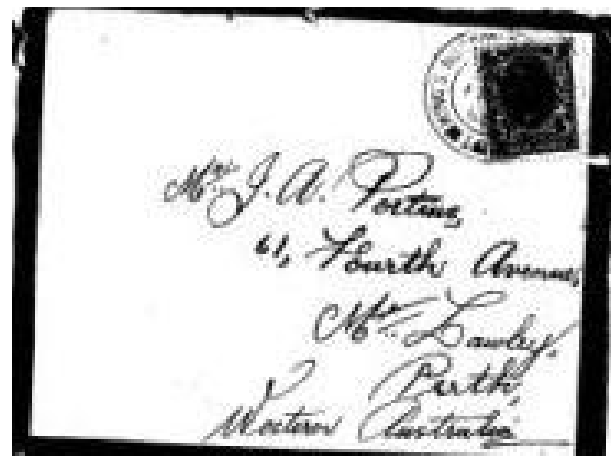 J. A.
61, Fourth Avenue,
Mt. Lawley,
Perth,
Western Australia